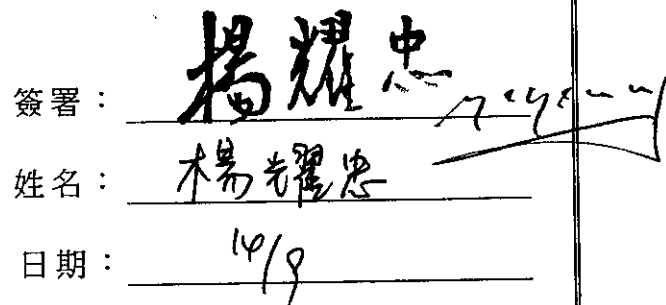 簽署：楊耀忠
姓名：楊耀忠
日期：14/9